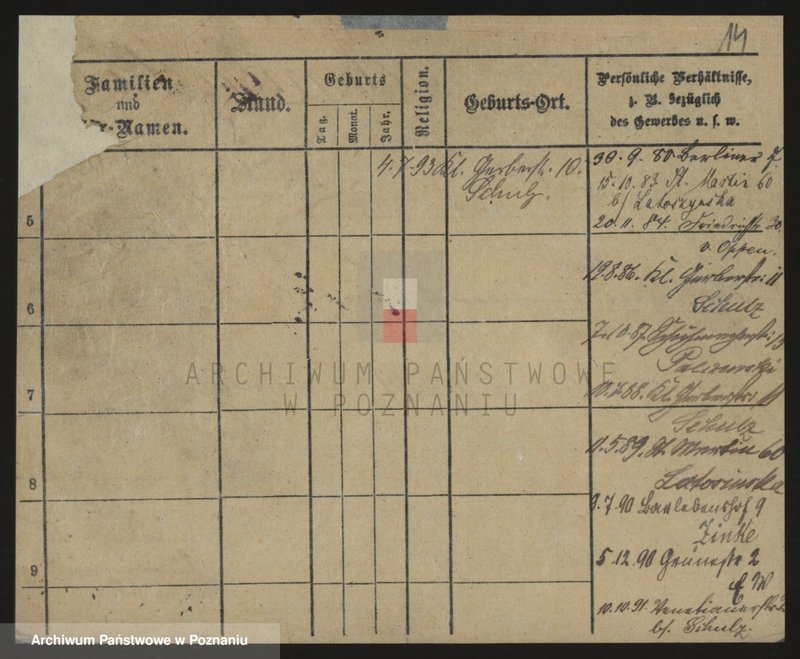 14
Familien
und
r-Namen.
Stand.
Geburts
Tag.
Monat.
Jahr.
Religion.
Geburts-Ort.
Persönliche Verhältnisse,
z. B. bezüglich
des Gewerbes u. s. w.
4.7.93 Kl. Gerberstr. 10.
Schulz.
30.9.80 Berliner 7
15.10.83 St. Martin 60
b/ Latoszynska
20.11.84. Friedrichstr 30
v. Oppen.
12.8.86. Kl. Gerberstr: 11
Schulz
Palewski
10.7.88. Kl. Gerberstr: 11
Schulz
11.5.89. St. Martin 60
Latosinska
9.7.90 Barlebenshof 9
Zinke
5.12.90 Grünestr 2
10.10.91. Venetianerstr
b/. Schulz.
5
6
7
8
9
ARCHIWUM PAŃSTWOWE
W POZNANIU
Archiwum Państwowe w Poznaniu